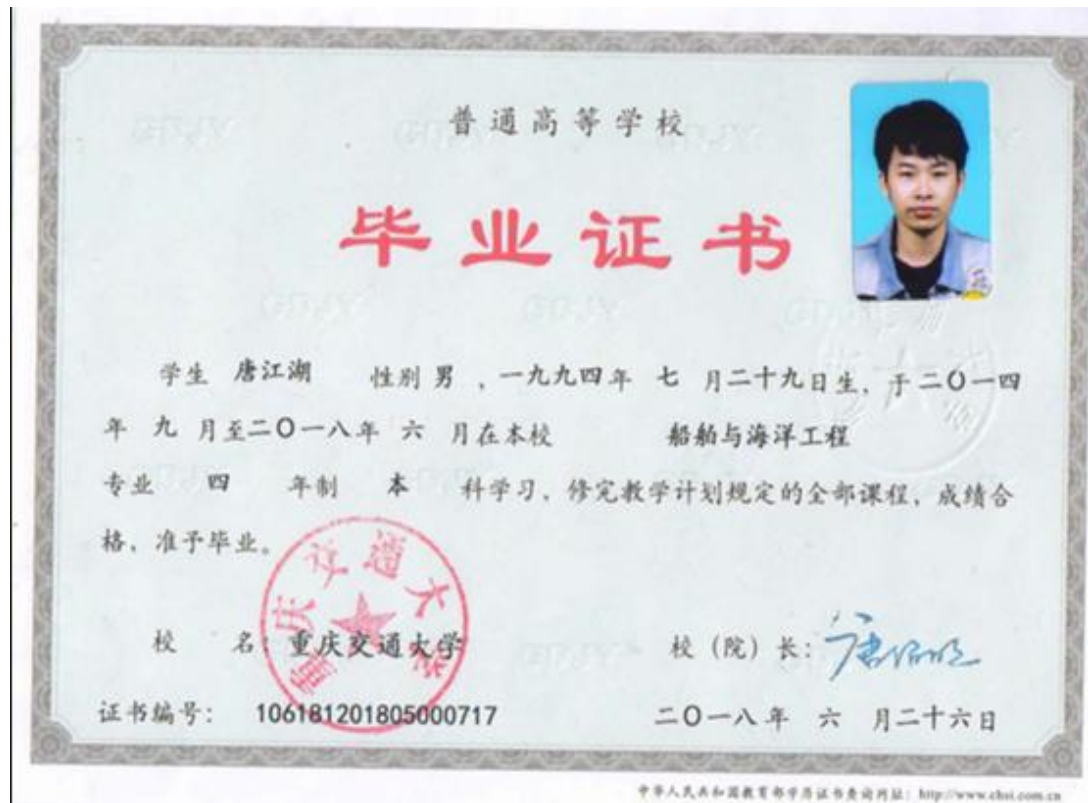 普通高等学校
毕业证书
学生 唐江湖 性别 男 ，一九九四年 七 月二十九日生，于二〇一四
年 九 月至二〇一八年 六 月在本校 船舶与海洋工程
专业 四 年制 本 科学习，修完教学计划规定的全部课程，成绩合
格，准予毕业。
重庆交通大学
校 名：重庆交通大学 校（院）长：唐伯明
证书编号： 106181201805000717 二〇一八年 六 月二十六日
中华人民共和国教育部学历证书查询网址：http://www.chsi.com.cn